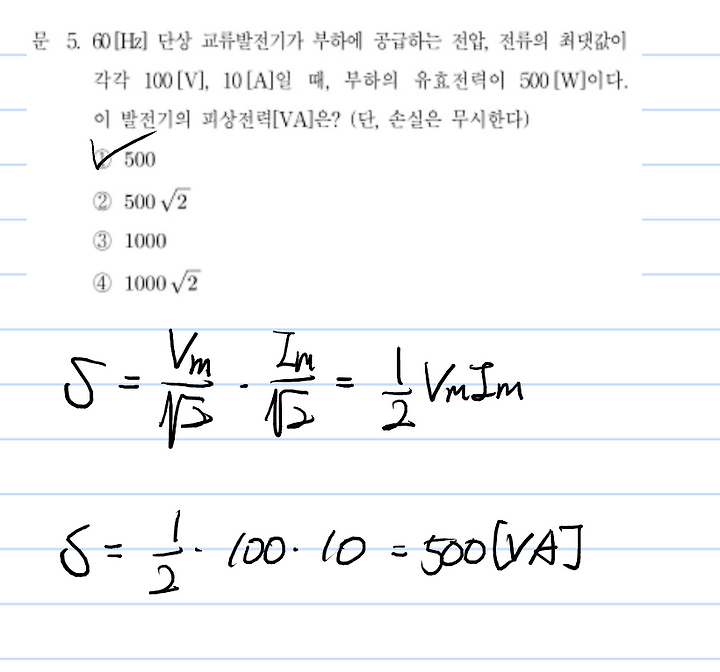 문 5. 60[Hz] 단상 교류발전기가 부하에 공급하는 전압, 전류의 최댓값이
각각 100[V], 10[A]일 때, 부하의 유효전력이 500[W]이다.
이 발전기의 피상전력[VA]은? (단, 손실은 무시한다)
① 500
② 500√2
③ 1000
④ 1000√2
S = Vm/√2 · Im/√2 = 1/2 VmIm
S = 1/2 · 100 · 10 = 500[VA]